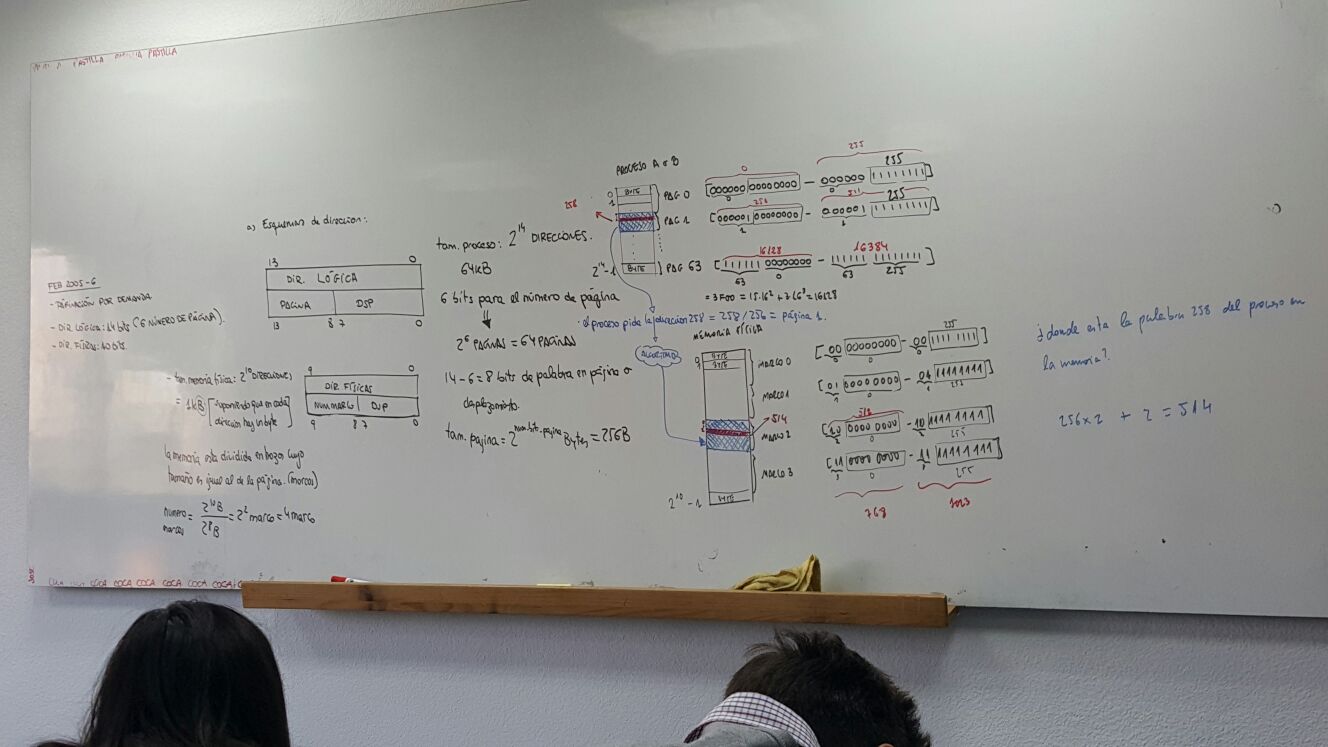 PASTILLA PASTILLA
FEB 2005-6
- PAGINACIÓN POR DEMANDA
- DIR LÓGICA: 14 bits (6 NÚMERO DE PÁGINA).
- DIR. FÍSICA: 10 bits.
a) Esquemas de dirección:
13 0
DIR. LÓGICA
PAGINA DSP
13 8 7 0
- tam. memoria física: 2^10 DIRECCIONES
= 1kB [suponiendo que en cada dirección hay un byte]
9 0
DIR FÍSICAS
NUM MARCO DSP
9 8 7 0
la memoria esta dividida en bozos cuyo
tamaño es igual al de la página. (marcos)
numero marcos = 2^10B / 2^8B = 2^2 marco = 4 marco
tam. proceso: 2^14 DIRECCIONES.
64kB
6 bits para el número de página
2^6 PAGINAS = 64 PAGINAS
14 - 6 = 8 bits de palabra en página o
desplazamiento.
Bytes = 256B
PROCESO A o B
0 BYTE
1
PAG 0
258
PAG 1
2^14-1 BYTE PAG 63
0 255
[000000 00000000 - 000000 11111111]
0 0 255
[000001 00000000 - 000001 11111111]
1 1 255
16128 16384
[111111 00000000 - 111111 11111111]
63 0 63 255
= 3F00 = 15.16^2 + 3.16^3 = 16128
el proceso pide la dirección 258 = 258/256 = página 1.
MEMORIA FÍSICA
ALGORITMO
0 BYTE
1 BYTE
MARCO 0
MARCO 1
514
MARCO 2
MARCO 3
2^10 - 1 BYTE
255
[00 00000000 - 00 11111111]
0
[01 00000000 - 01 11111111]
512
[10 00000000 - 10 11111111]
2 0 255
[11 00000000 - 11 11111111]
3 0 255
768 1023
¿donde esta la palabra 258 del proceso en
la memoria?
256x2 + 2 = 514
COCA COCA COCA COCA COCA